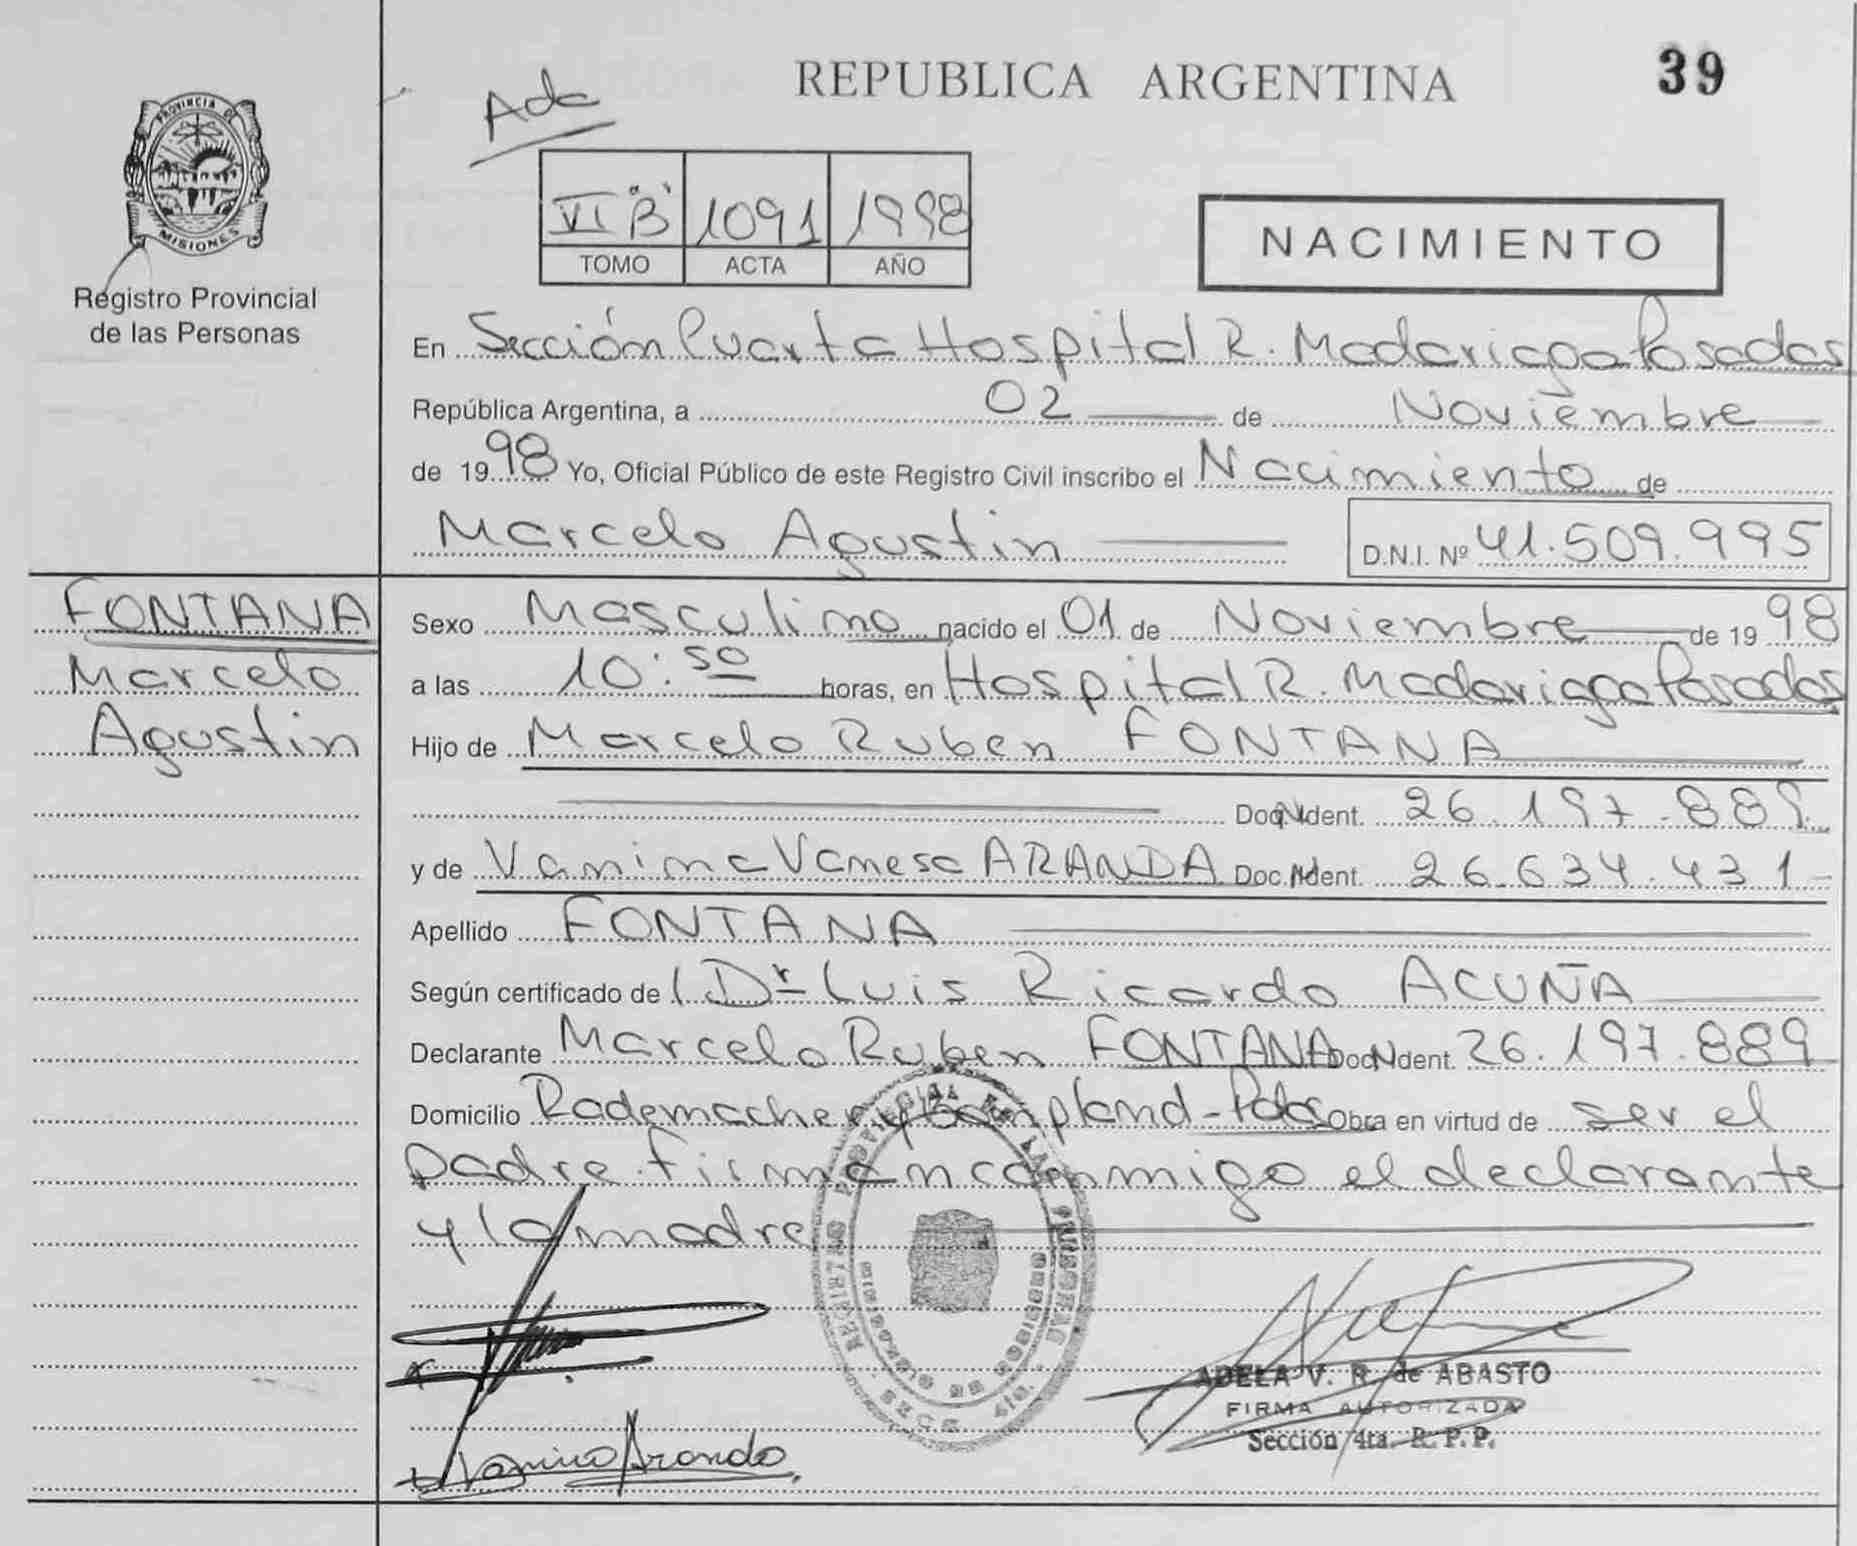 REPUBLICA ARGENTINA
39
Ada
PROVINCIA DE
MISIONES
Registro Provincial
de las Personas
VI "B" 1091 1998
TOMO ACTA AÑO
NACIMIENTO
En Sección Cuarta Hospital R. Madariaga Posadas
República Argentina, a 02 de Noviembre
de 1998 Yo, Oficial Público de este Registro Civil inscribo el Nacimiento de
Marcelo Agustin D.N.I. Nº 41.509.995
FONTANA
Marcelo
Agustin
Sexo Masculino nacido el 01 de Noviembre de 1998
a las 10:50 horas, en Hospital R. Madariaga Posadas
Hijo de Marcelo Ruben FONTANA
Doc. Ident. 26.197.889
y de Vanina Vanesa ARANDA Doc. Ident. 26.634.431
Apellido FONTANA
Según certificado de Dr Luis Ricardo ACUÑA
Declarante Marcelo Ruben FONTANA Doc. Ident. 26.197.889
Domicilio Rademacher y Bompland - Pdas Obra en virtud de ser el
padre. firman conmigo el declarante
y la madre
ADELA V. R. de ABASTO
FIRMA AUTORIZADA
Sección 4ta. R. P. P.
Vanina Aranda